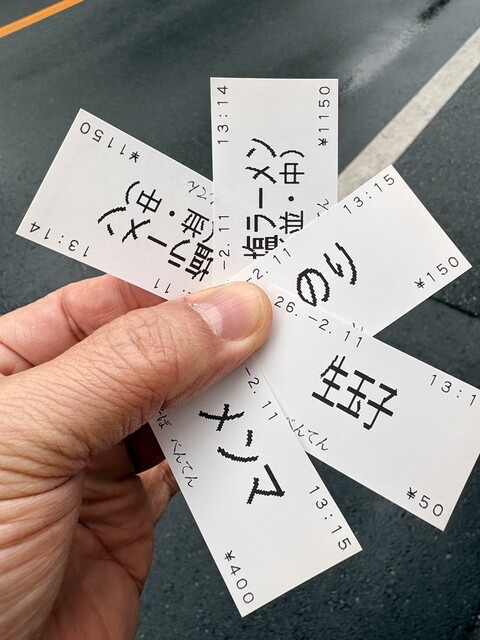 ¥1150
んてん
塩ラーメン
(並・中)
13:14
2.11
¥1150
塩ラーメン
並・中)
13:14
-2.11
13:15
のり
¥150
-2.11
26.-2.11
13:1
生玉子
べんてん
¥50
-2.11
13:15
メンマ
ば べんてん
¥400